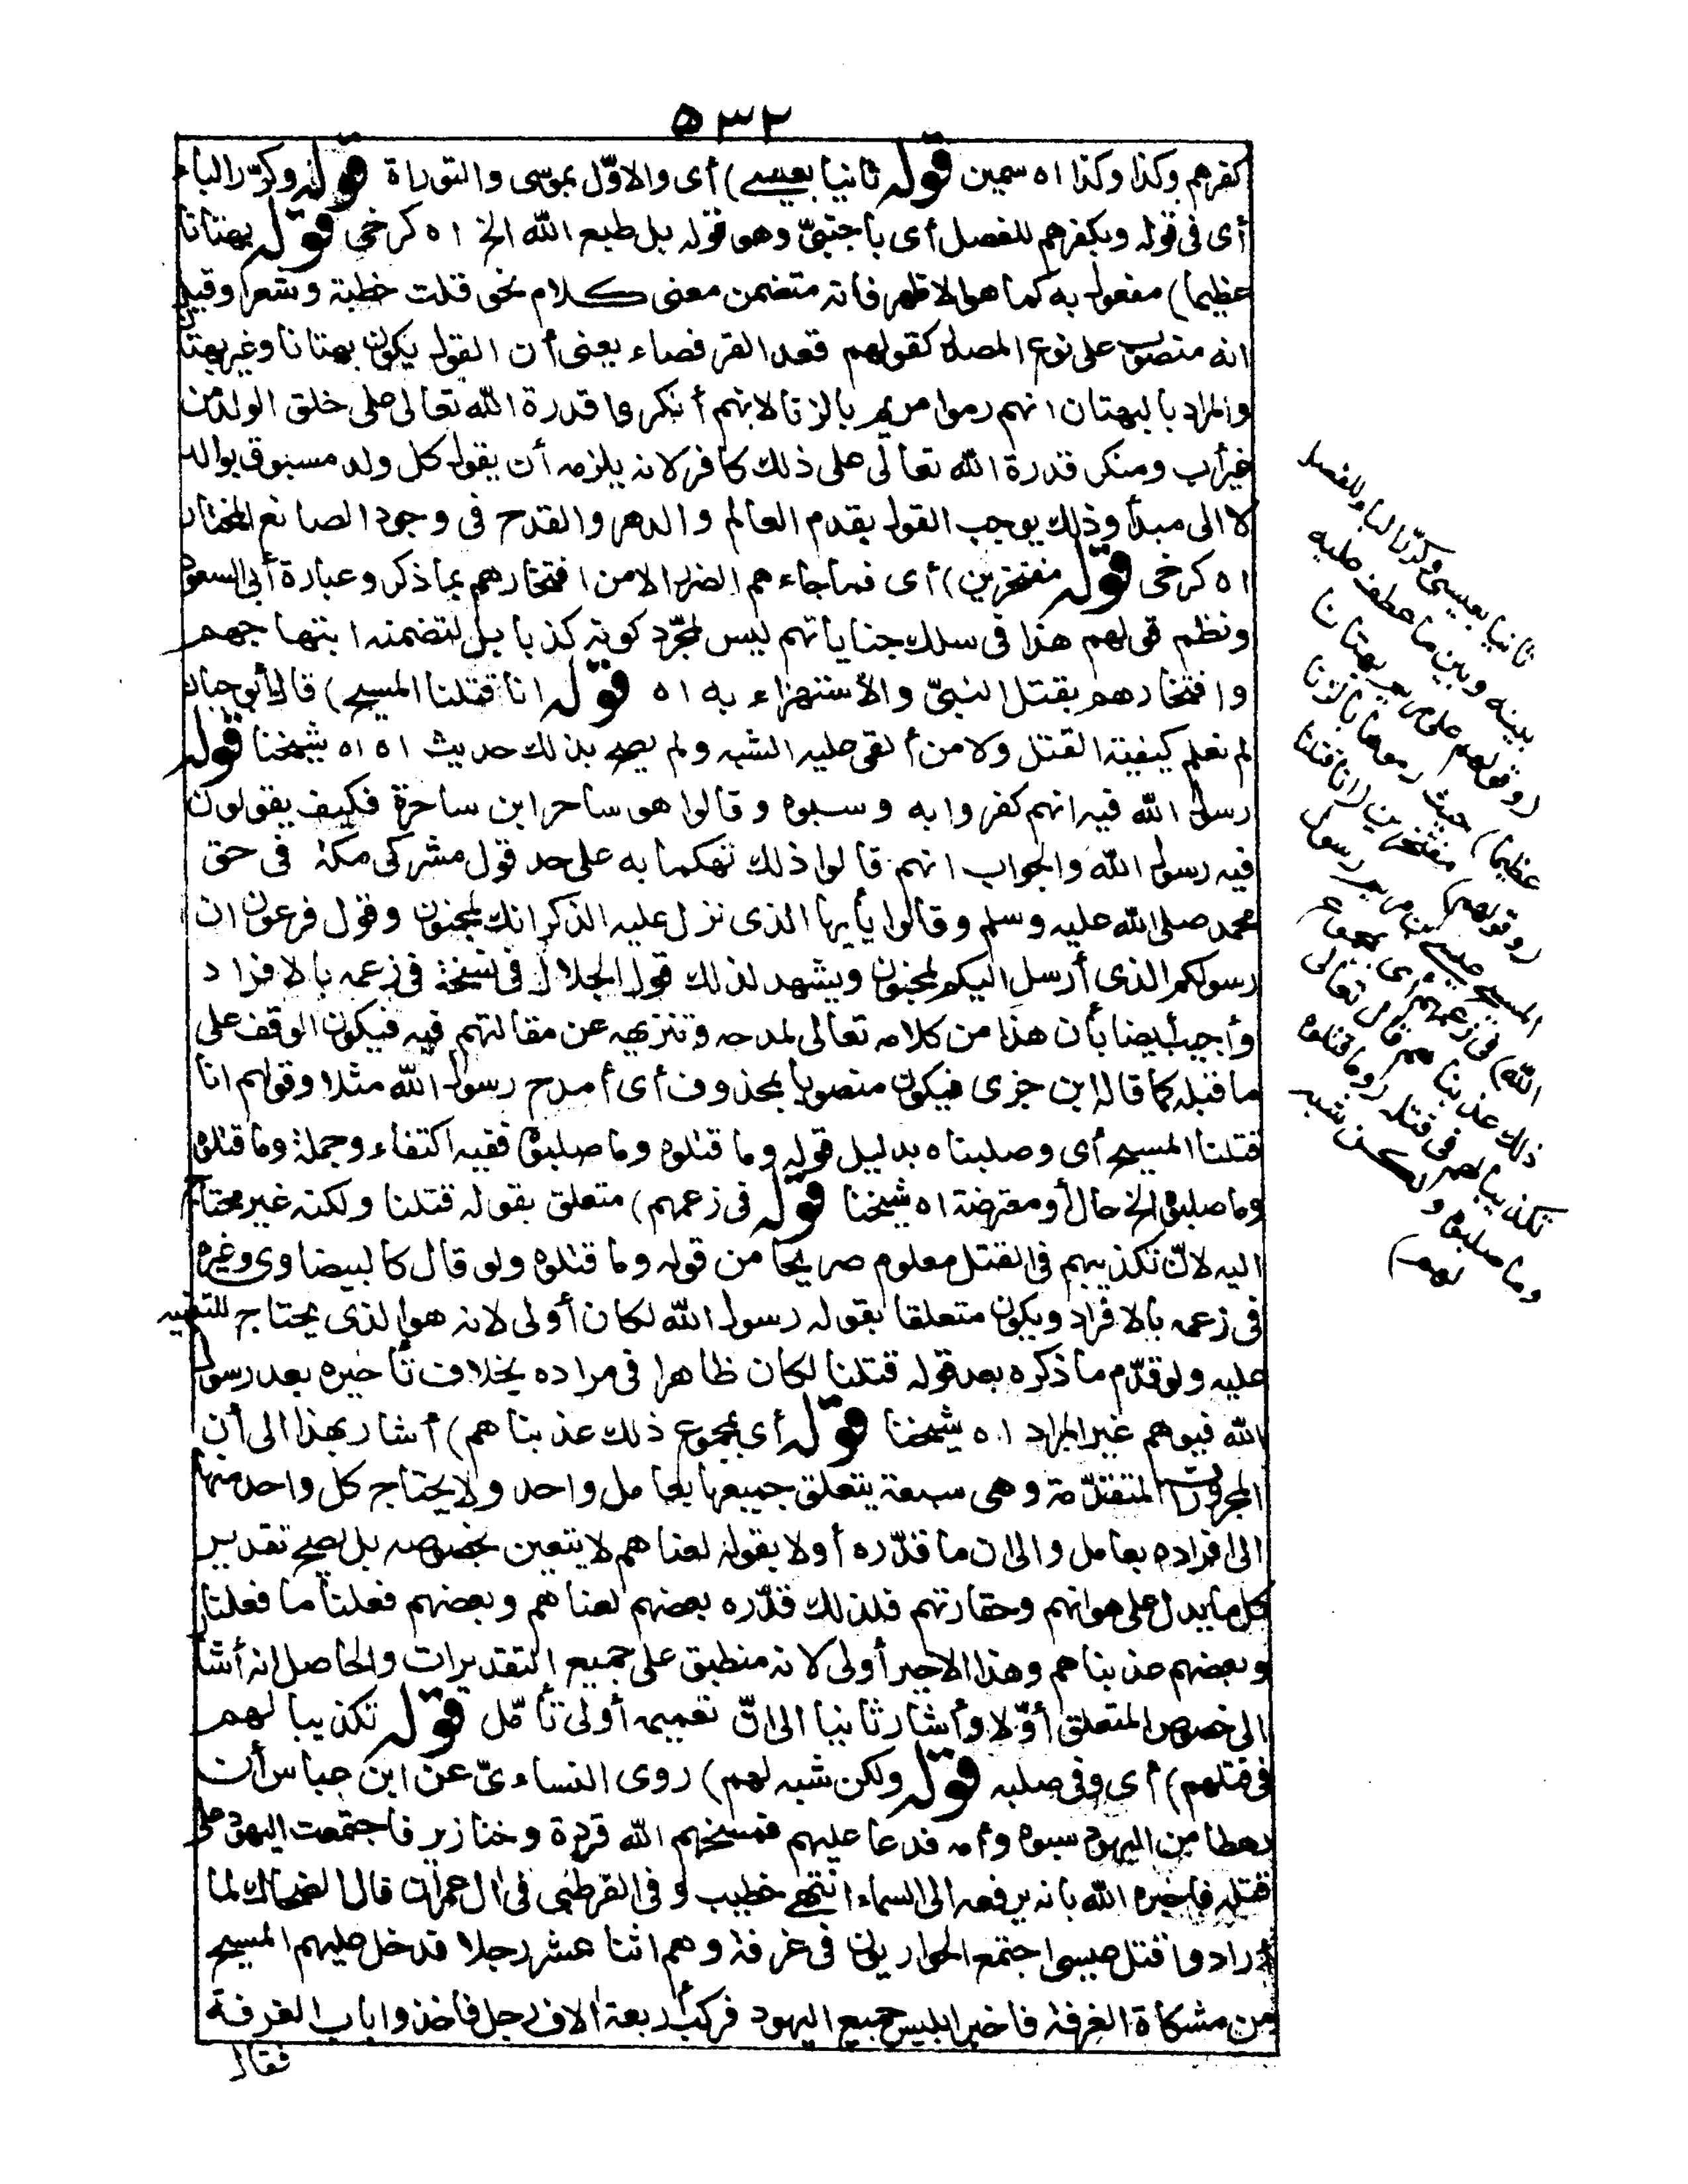 ٥٣٢
كفرهم وكذا وكذا اه سمين قوله ثانيا بعيسى) أى والاوّل بموسى والتوراة قوله وكرّر الباء
أى فى قوله وبكفرهم للفصل أى بأجنبىّ وهو قوله بل طبع الله الخ اه كرخى قوله بهتانا
عظيما) مفعول به كما هو الاظهر فانه متضمن معنى كلام نحو قلت خطبة وشعرا وقيل
انه منصوب على نوع المصدر كقولهم قعد القرفصاء يعنى أن القول يكون بهتانا وغير بهتان
والمراد بالبهتان انهم رموا مريم بالزنا لانهم أنكروا قدرة الله تعالى على خلق الولد من
غير أب ومنكر قدرة الله تعالى على ذلك كافر لانه يلزمه أن يقول كل ولد مسبوق بوالد
لا الى مبدأ وذلك يوجب القول بقدم العالم والدهر والقدح فى وجود الصانع المختار
اه كرخى قوله مفتخرين) أى فما جاءهم الضرر الا من افتخارهم بما ذكر وعبارة أبى السعود
ونظم قولهم هذا فى سلك جناياتهم ليس لمجرّد كونه كذبا بل لتضمنه ابتهاجهم
وافتخارهم بقتل النبىّ والاستهزاء به اه قوله انا قتلنا المسيح) قال أبو حيان
لم نعلم كيفية القتل ولا من ألقى عليه الشبه ولم يصح بذلك حديث اه اه شيخنا قوله
رسول الله فيه انهم كفروا به وسبوه وقالوا هو ساحر ابن ساحرة فكيف يقولون
فيه رسول الله والجواب انهم قالوا ذلك تهكما به على حد قول مشركى مكة فى حق
محمد صلى الله عليه وسلم وقالوا يأيها الذى نزل عليه الذكر انك لمجنون وقول فرعون ان
رسولكم الذى أرسل اليكم لمجنون ويشهد لذلك قول الجلال فى نسخة فى زعمه بالافراد
وأجيب أيضا بأن هذا من كلامه تعالى لمدحه وتنزيهه عن مقالتهم فيه فيكون الوقف على
ما قبله كما قاله ابن جزى فيكون منصوبا بمحذوف أى أمدح رسول الله مثلا وقولهم انا
قتلنا المسيح أى وصلبناه بدليل قوله وما قتلوه وما صلبوه ففيه اكتفاء وجملة وما قتلوه
وما صلبوه الخ حال أو معترضة اه شيخنا قوله فى زعمهم) متعلق بقوله قتلنا ولكنه غير محتاج
اليه لانّ تكذيبهم فى القتل معلوم صريحا من قوله وما قتلوه ولو قال كالبيضاوى وغيره
فى زعمه بالافراد ويكون متعلقا بقوله رسول الله لكان أولى لانه هو الذى يحتاج للتنبيه
عليه ولو قدّم ما ذكره بعد قوله قتلنا لكان ظاهرا فى مراده بخلاف تأخيره بعد رسول
الله فيوهم غير المراد اه شيخنا قوله أى بمجموع ذلك عذبناهم) أشار بهذا الى أن
المجرورات المتقدّمة وهى سبعة يتعلق جميعها بعامل واحد ولا يحتاج كل واحد منها
الى افراده بعامل والى ان ما قدّره أولا بقوله لعناهم لا يتعين بخصوصه بل يصح تقدير
كل ما يدل على هوانهم وحقارتهم فلذلك قدّره بعضهم لعناهم وبعضهم فعلنا ما فعلنا
وبعضهم عذبناهم وهذا الاخير أولى لانه منطبق على جميع التقديرات والحاصل انه أشا
الى خصوص المتعلق أوّلا وأشار ثانيا الى انّ تعميمه أولى تأمّل قوله تكذيبا لهم
فى قتلهم) أى وفى صلبه قوله ولكن شبه لهم) روى النساءىّ عن ابن عباس أن
رهطا من اليهود سبوه وأمه فدعا عليهم فمسخهم الله قردة وخنازير فاجتمعت اليهود على
قتله فاخبره الله بانه يرفعه الى السماء انتهى خطيب وفى القرطبى فى ال عمران قال الضحاك لما
أرادوا قتل عيسى اجتمع الحواريون فى غرفة وهم اثنا عشر رجلا فدخل عليهم المسيح
من مشكاة الغرفة فاخبر ابليس جميع اليهود فركب أربعة الاف رجل فاخذوا باب الغرفة
فقال
ثانيا بعيسى وكرّر الباء للفصل
بينه وبين ما عطف عليه
(وقولهم على مريم بهتانا
عظيما) حيث رموها بالزنا
(وقولهم) مفتخرين (انا قتلنا
المسيح عيسى بن مريم رسول
الله) فى زعمهم أى بمجموع
ذلك عذبناهم قال تعالى
تكذيبا لهم فى قتله (وما قتلوه
وما صلبوه ولكن شبه
لهم)